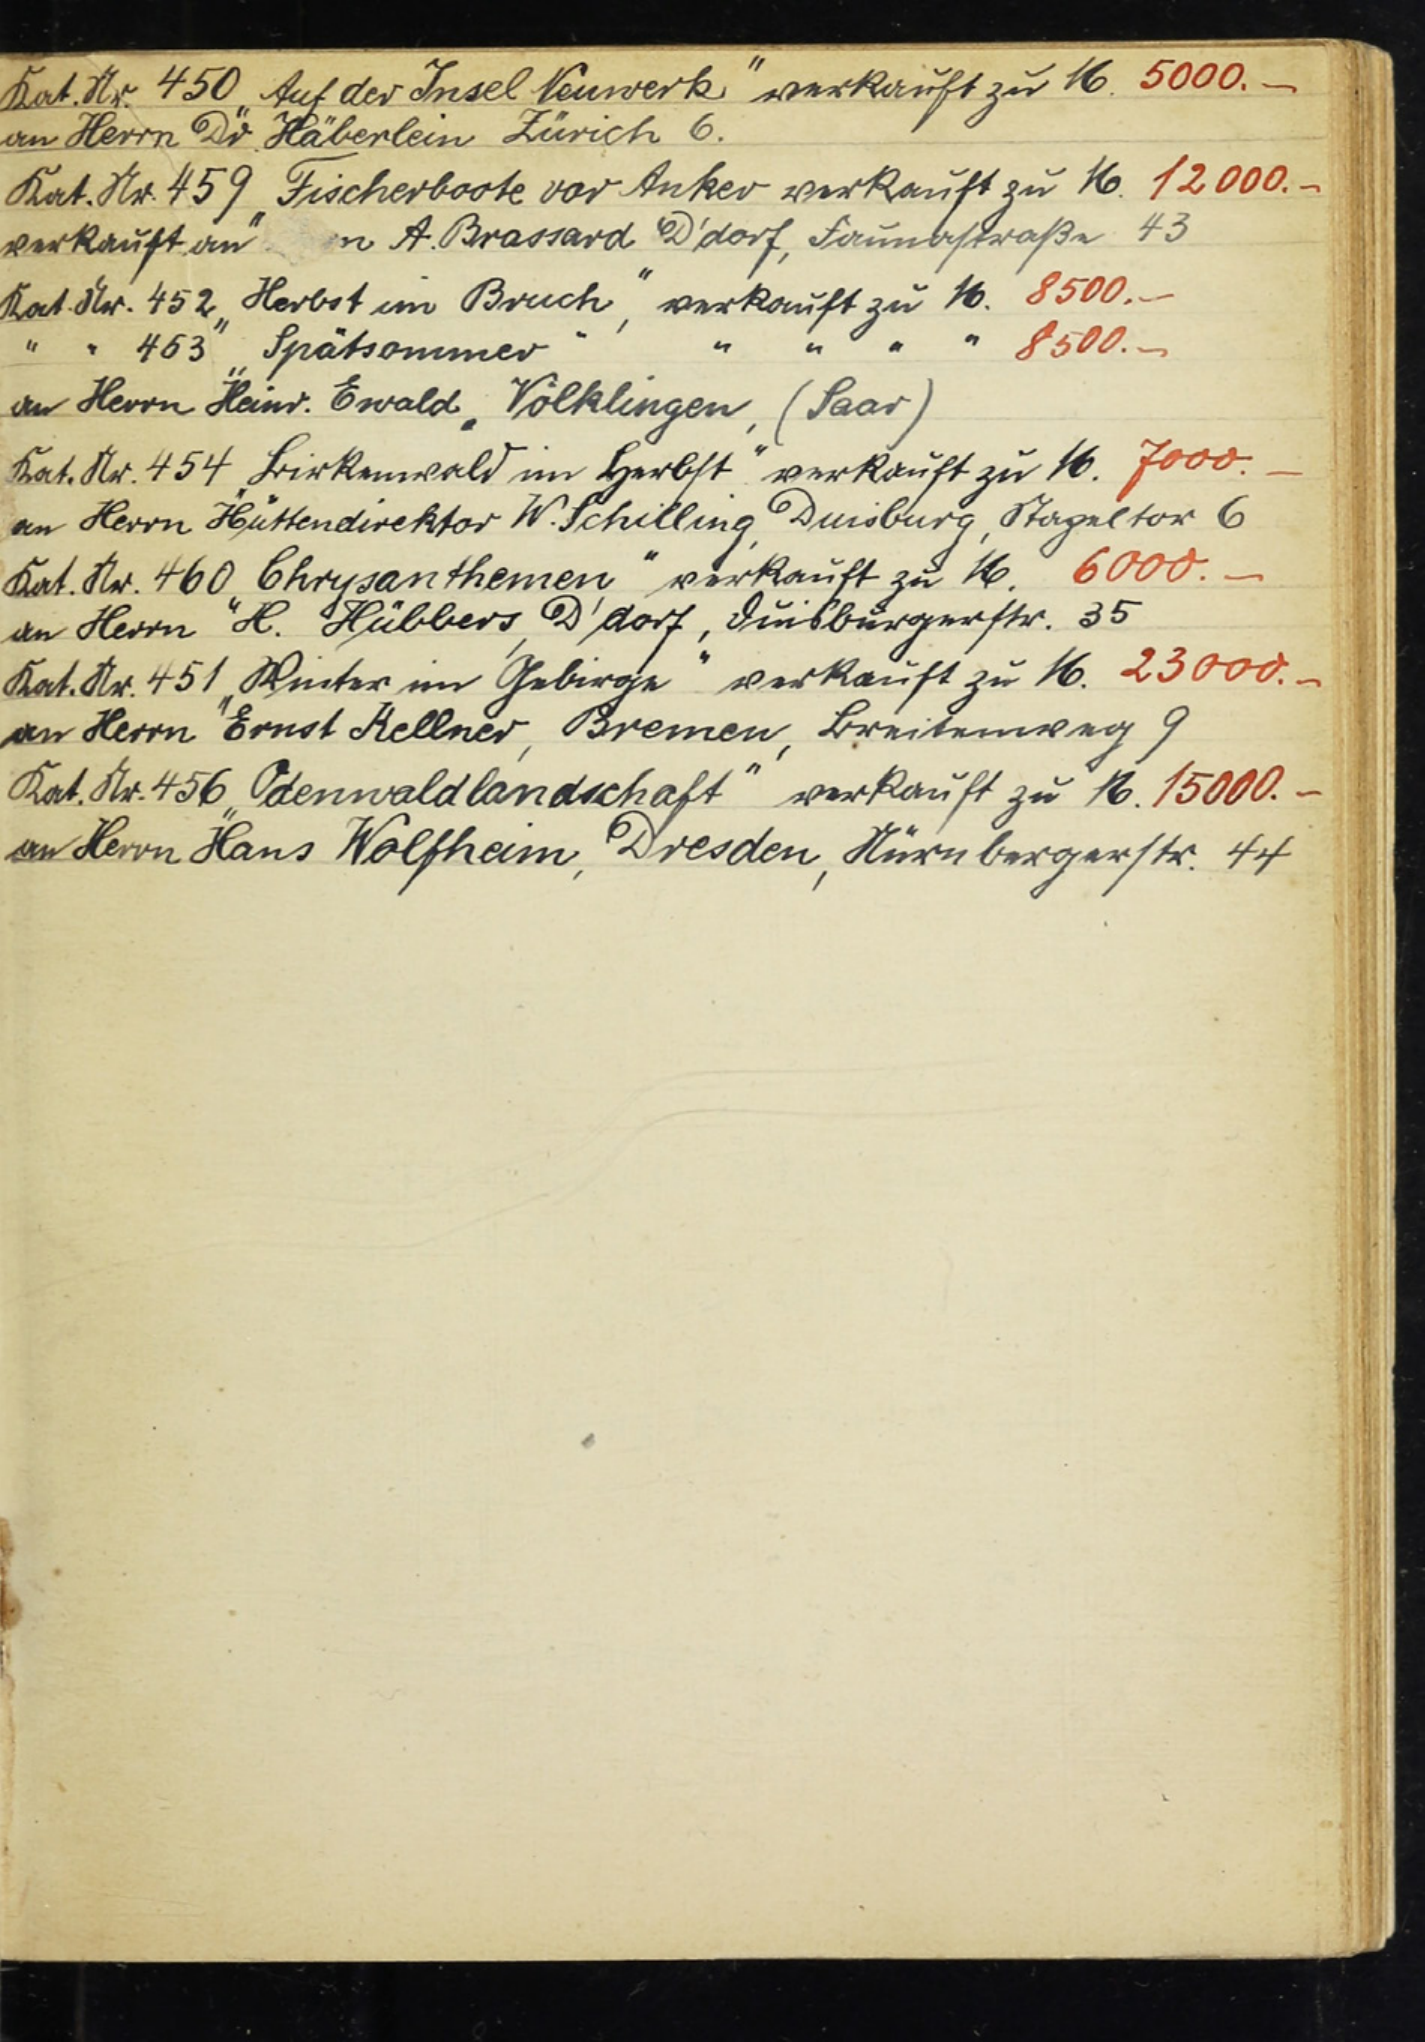 Kat. Nr. 450 „Auf der Insel Neuwerk“ verkauft zu M. 5000.—
an Herrn Dr. Häberlein Zürich 6.
Kat. Nr. 459 „Fischerboote vor Anker verkauft zu M. 12000.–
verkauft an n A. Brassard D'dorf, Faunastraße 43
Kat. Nr. 452 „Herbst im Bruch“, verkauft zu M. 8500.—
" " 463 „Spätsommer" " " " " 8500.—
an Herrn Heinr. Ewald, Völklingen, (Saar)
Kat. Nr. 454 „Birkenwald im Herbst“ verkauft zu M. 7000.—
an Herrn Hüttendirektor W. Schilling, Duisburg, Stapeltor 6
Kat. Nr. 460 „Chrysanthemen“ verkauft zu M. 6000.—
an Herrn H. Hübbers, D'dorf, Duisburgerstr. 35
Kat. Nr. 451 „Winter im Gebirge“ verkauft zu M. 23000.–
an Herrn Ernst Kellner, Bremen, Breitenweg 9
Kat. Nr. 456 „Odenwaldlandschaft“ verkauft zu M. 15000.–
an Herrn Hans Wolfheim, Dresden, Nürnbergerstr. 44